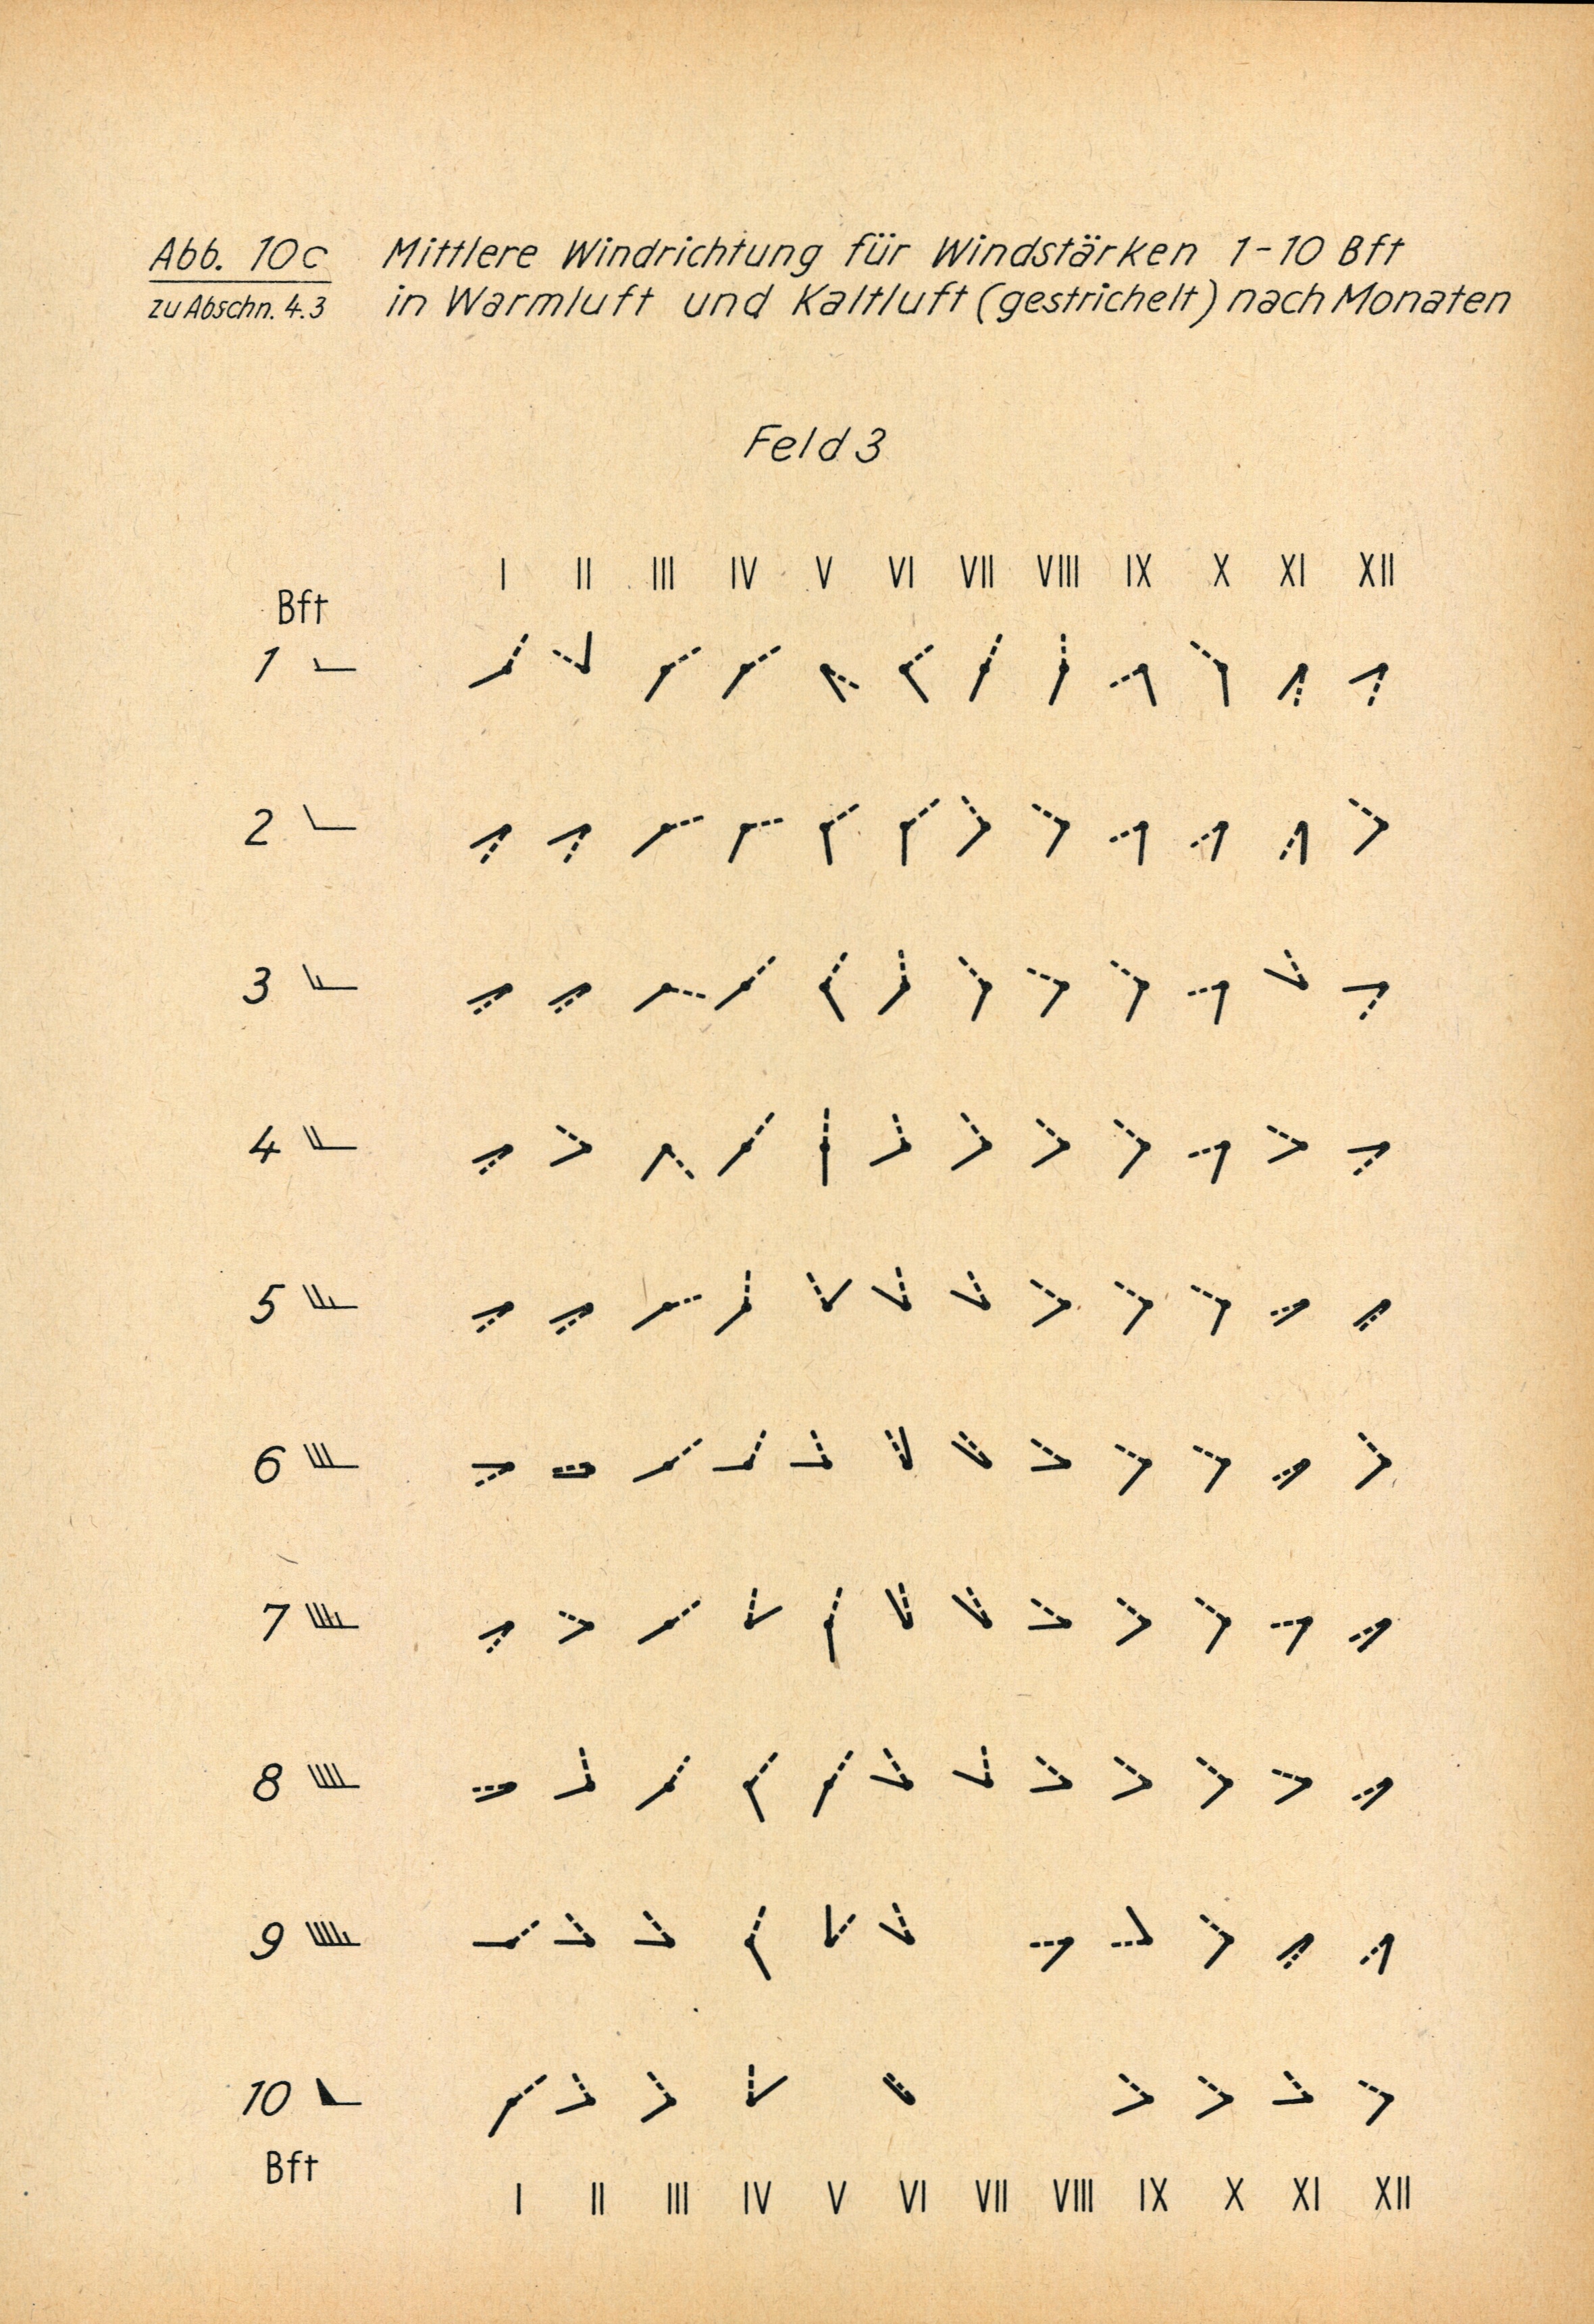 Abb. 10c Mittlere Windrichtung für Windstärken 1-10 Bft
zu Abschn. 4.3 in Warmluft und Kaltluft (gestrichelt) nach Monaten
Feld 3
I II III IV V VI VII VIII IX X XI XII
Bft
1
2
3
4
5
6
7
8
9
10
Bft
I II III IV V VI VII VIII IX X XI XII